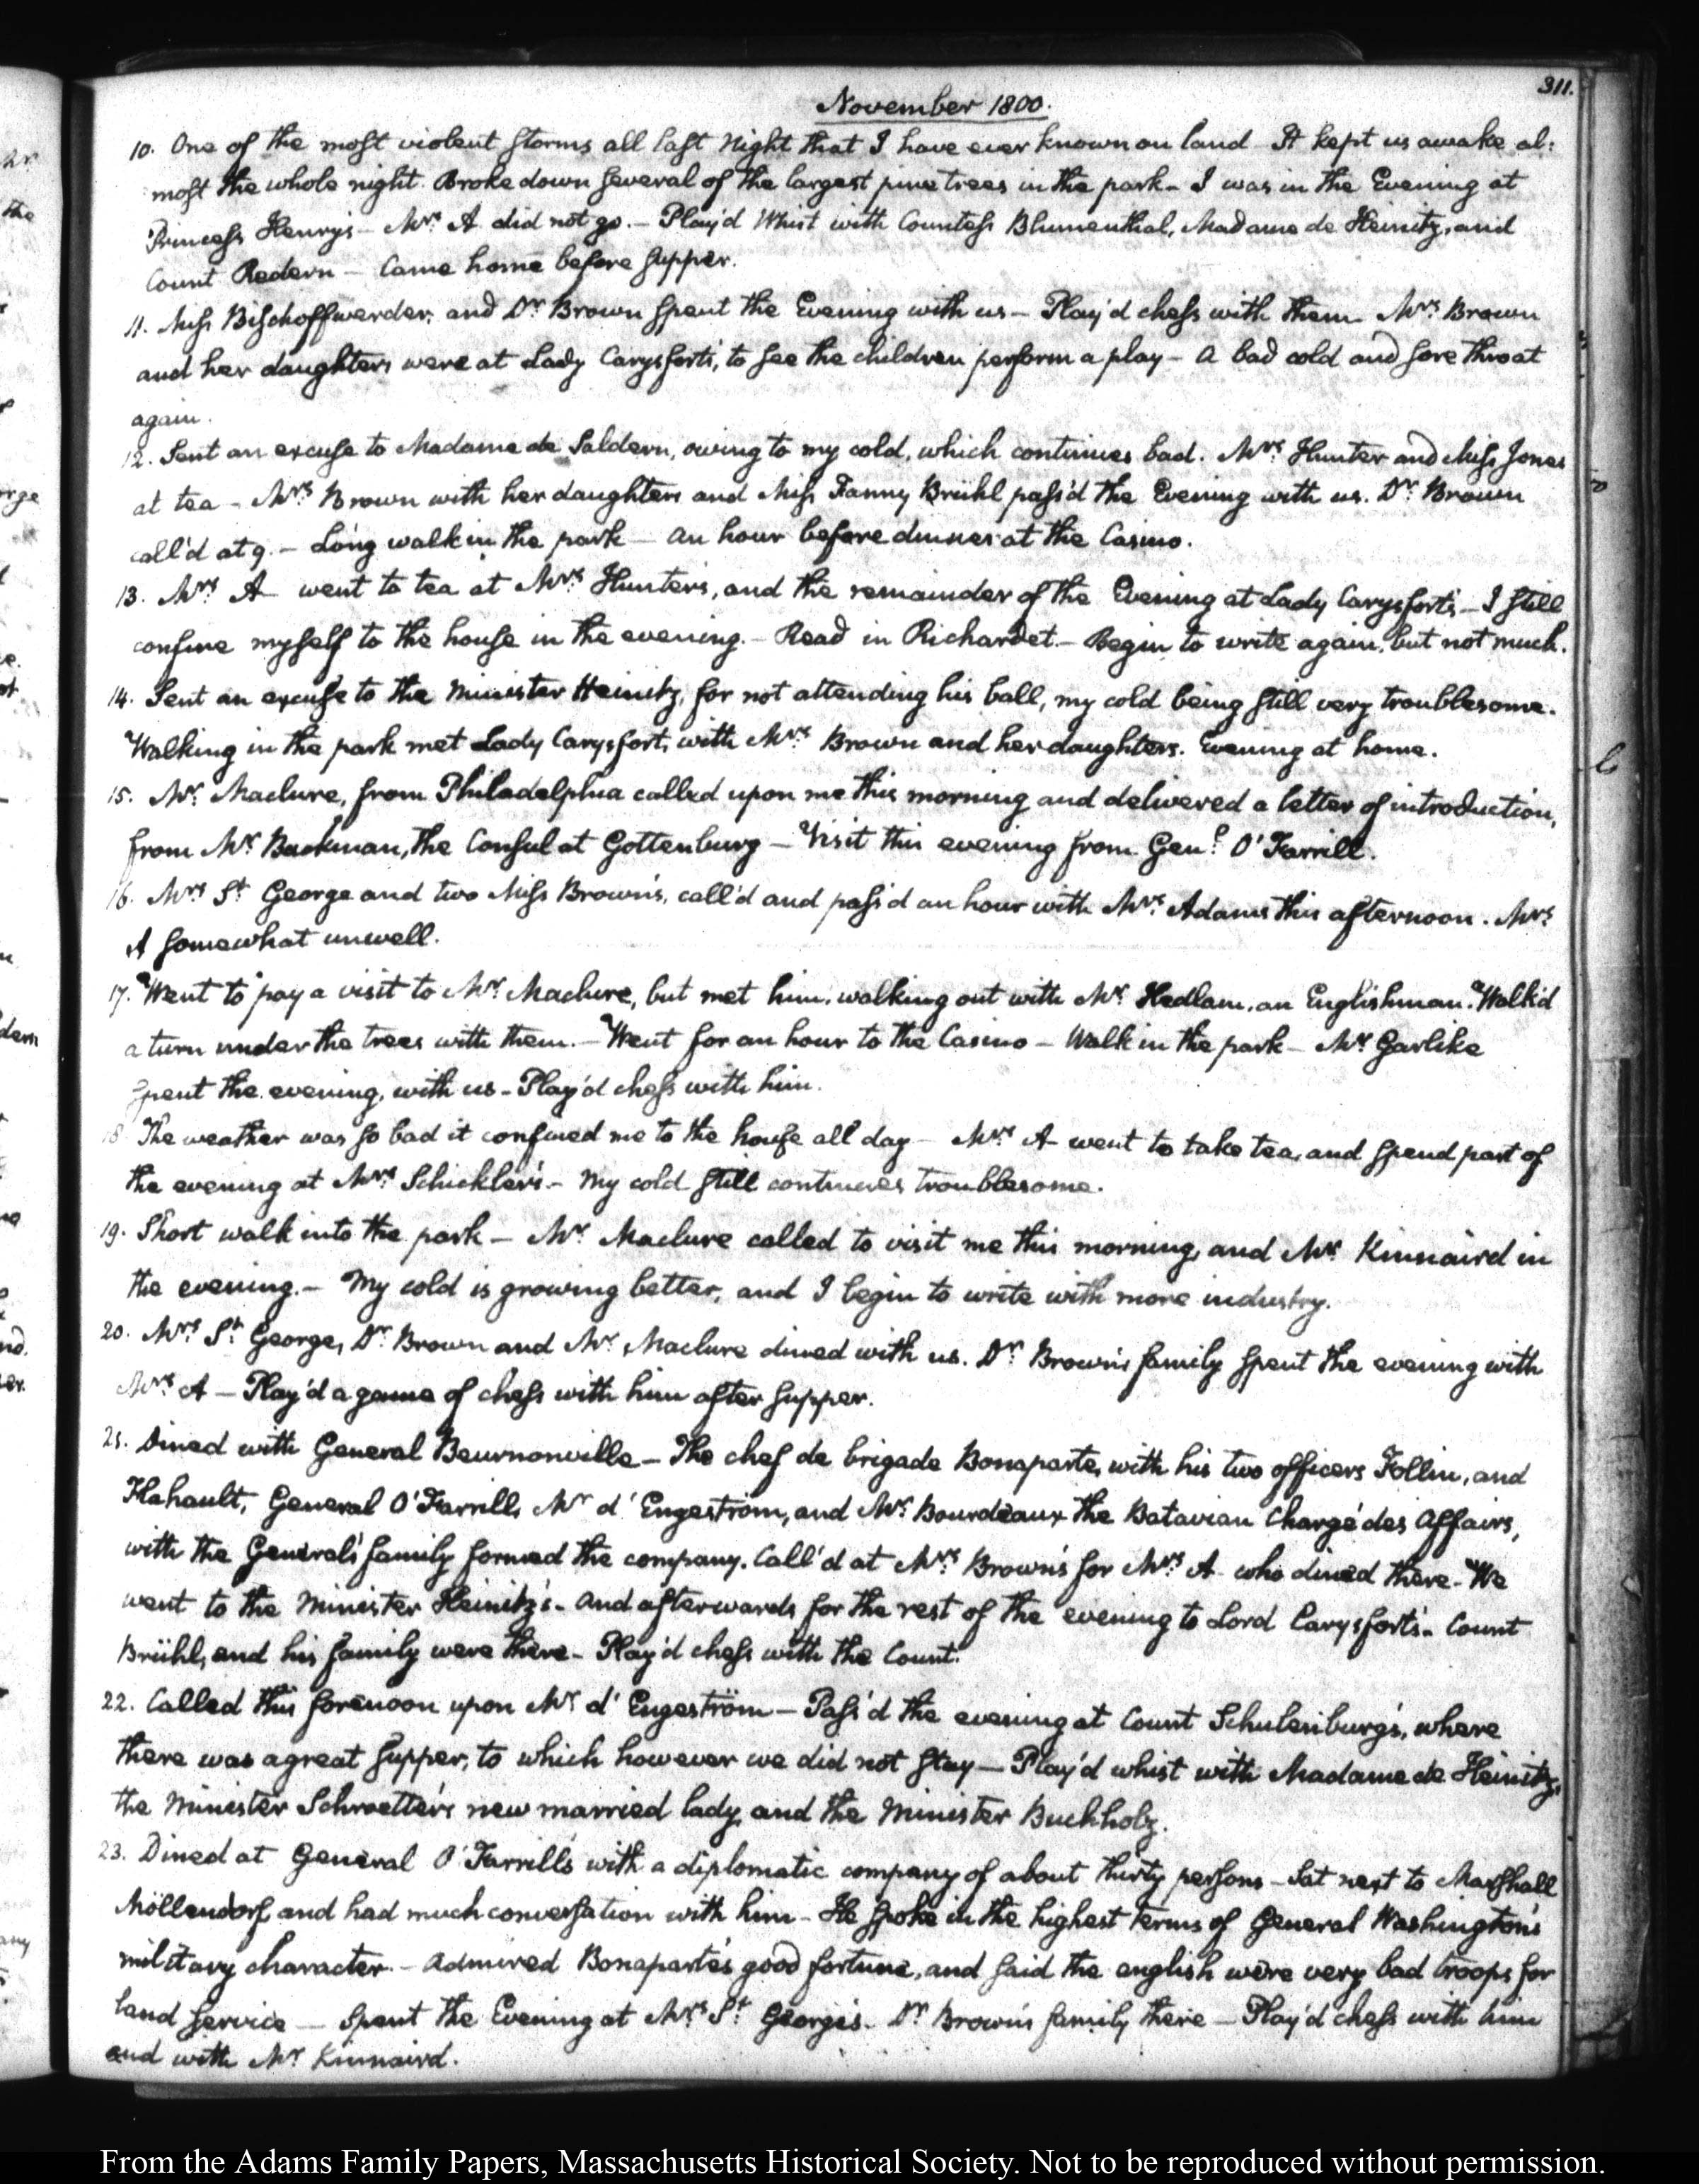 311.
November 1800.
10. One of the most violent storms all last night that I have ever known on land - It kept us awake al:
most the whole night. Broke down several of the largest pine trees in the park - I was in the Evening at
Princess Henry's - Mrs. A did not go. - Play'd Whist with Countess Blumenthal, Madame de Heinitz, and
Count Redern - Came home before supper.
11. Miss Bischoffwerder, and Dr. Brown spent the Evening with us - Play'd chess with them - Mrs. Brown
and her daughters were at Lady Carysfort's, to see the children perform a play - A bad cold and sore throat
again.
12. Sent an excuse to Madame de Saldern, owing to my cold, which continues bad. Mrs. Hunter and Miss Jones
at tea - Mrs. Brown with her daughters and Miss Fanny Brühl pass'd the Evening with us. Dr. Brown
call'd at 9. - Long walk in the park - An hour before dinner at the Casino.
13. Mrs. A - went to tea at Mrs. Hunter's, and the remainder of the Evening at Lady Carysfort's - I still
confine myself to the house in the evening. - Read in Richardet. - Begin to write again, but not much.
14. Sent an excuse to the Minister Heinitz, for not attending his ball, my cold being still very troublesome.
Walking in the park met Lady Carysfort, with Mrs. Brown and her daughters. Evening at home.
15. Mr. Maclure, from Philadelphia called upon me this morning and delivered a letter of introduction,
from Mr. Backman, the Consul at Gottenburg - Visit this evening from Genl. O'Farrill.
16. Mrs. St. George and two Miss Brown's, call'd and pass'd an hour with Mrs. Adams this afternoon. Mrs.
A somewhat unwell.
17. Went to pay a visit to Mr. Maclure, but met him, walking out with Mr. Hedlam, an Englishman. Walk'd
a turn under the trees with them. - Went for an hour to the Casino - Walk in the park - Mr. Garlike
spent the evening, with us - Play'd chess with him.
18. The weather was so bad it confined me to the house all day - Mrs. A - went to take tea, and spend part of
the evening at Mrs. Schickler's - My cold still continues troublesome.
19. Short walk into the park - Mr. Maclure called to visit me this morning, and Mr. Kinnaird in
the evening. - My cold is growing better, and I begin to write with more industry.
20. Mrs. St. George, Dr. Brown and Mr. Maclure dined with us. Dr. Brown's family spent the evening with
Mrs. A - Play'd a game of chess with him after supper.
21. Dined with General Beurnonville - The chef de brigade Bonaparte, with his two officers Follin, and
Flahault, General O'Farrill, Mr. d'Engeström, and Mr. Bourdeaux the Batavian Chargé des Affairs,
with the General's family formed the company. Call'd at Mrs. Brown's for Mrs. A - who dined there - We
went to the Minister Heinitz's - And afterwards for the rest of the evening to Lord Carysfort's - Count
Brühl, and his family were there - Play'd chess with the Count.
22. Called this forenoon upon Mr. d'Engeström - Pass'd the evening at Count Schulenburg's, where
there was a great supper, to which however we did not stay - Play'd whist with Madame de Heinitz,
the Minister Schroetter's new married lady, and the Minister Buchholz.
23. Dined at General O'Farrill's with a diplomatic company of about thirty persons - Sat next to Marshall
Möllendorf, and had much conversation with him - He spoke in the highest terms of General Washington's
military character. - Admired Bonaparte's good fortune, and said the english were very bad troops for
land service - Spent the Evening at Mrs. St. George's - Dr. Brown's family there - Play'd chess with him
and with Mr. Kinnaird.
From the Adams Family Papers, Massachusetts Historical Society. Not to be reproduced without permission.